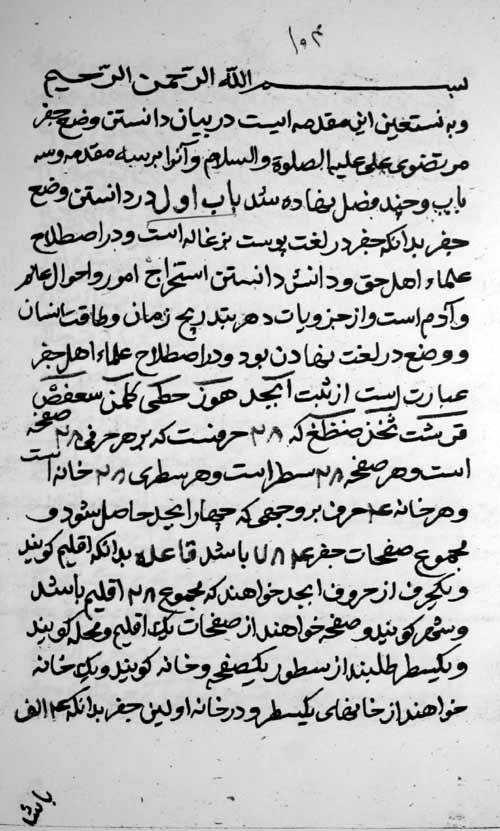 ۱۰۴
بســـــم الله الرّحمن الرّحیم
وبه نستعین این مقدمه ایست در بیان دانستن وضع جفر
مرتضوی علی علیه الصلوة والسلام و آنرا بر سه مقدمه و سه
باب و چند فصل نهاده شد باب اول در دانستن وضع
جفر بدانکه جفر در لغت پوست بزغاله است و در اصطلاح
علماء اهل حق و دانش دانستن استخراج امور و احوال عالم
و آدم است و از جزویات دهر بتدریج زمان و طاقت انسان
و وضع در لغت نهادن بود و در اصطلاح علماء اهل جفر
عبارت است از ثبت ابجد هوز حطی کلمن سعفص
قرشت ثخذ ضظغ که ۲۸ حرفست که بر هر حرفی ۲۸ صفحه
است و هر صفحه ۲۸ سطر است و هر سطری ۲۸ خانه است
و هر خانه ۴ حرف بر وجهی که چهار ابجد حاصل شود و
مجموع صفحات جفر ۷۸۴ باشد قاعده بدانکه اقلیم کویند
و یکحرف از حروف ابجد خواهند که مجموع ۲۸ اقلیم باشد
و شهر کویند و صفحه خواهند از صفحات یک اقلیم و محله کویند
و یکسطر طلبند از سطور یکصفحه و خانه کویند و یک خانه
خواهند از خانهای یکسطر و در خانه اولین جفر بدانکه ۴ الف
باشد